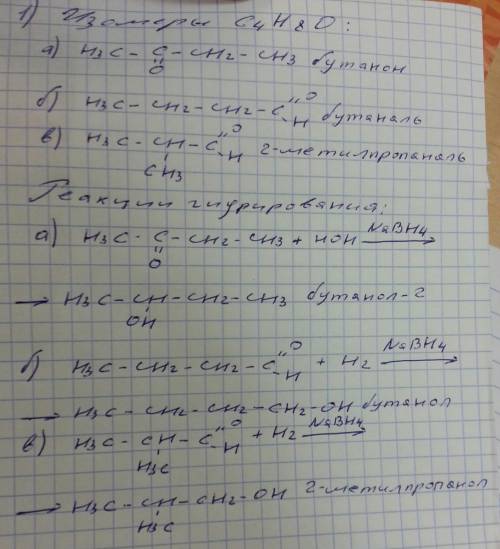 1) Изомеры C4H8O:
а) H3C - C - CH2 - CH3 бутанон
=
O
б) H3C - CH2 - CH2 - C =O -H бутаналь
в) H3C - CH - C =O -H 2-метилпропаналь
CH3
Реакции гидрирования:
а) H3C - C - CH2 - CH3 + HOH NaBH4 →
=
O
→ H3C - CH - CH2 - CH3 бутанол-2
OH
б) H3C - CH2 - CH2 - C =O -H + H2 NaBH4 →
→ H3C - CH2 - CH2 - CH2 - OH бутанол
в) H3C - CH - C =O -H + H2 NaBH4 →
H3C
→ H3C - CH - CH2 - OH 2-метилпропанол
H3C